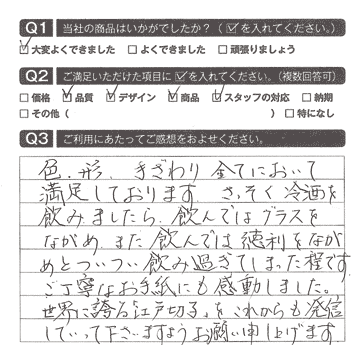 Q1 当社の商品はいかがでしたか？（☑を入れてください。）
☑大変よくできました □よくできました □頑張りましょう
Q2 ご満足いただけた項目に☑を入れてください。（複数回答可）
□価格 ☑品質 ☑デザイン ☑商品 ☑スタッフの対応 □納期
□その他（ ） □特になし
Q3 ご利用にあたってご感想をおよせください。
色、形、手ざわり 全てにおいて
満足しております。さっそく冷酒を
飲みましたら、飲んではグラスを
ながめ、また飲んでは徳利をなが
めとついつい飲み過ぎてしまった程です。
ご丁寧なお手紙にも感動しました。
世界に誇る江戸切子をこれからも発信
していって下さいますようお願い申し上げます